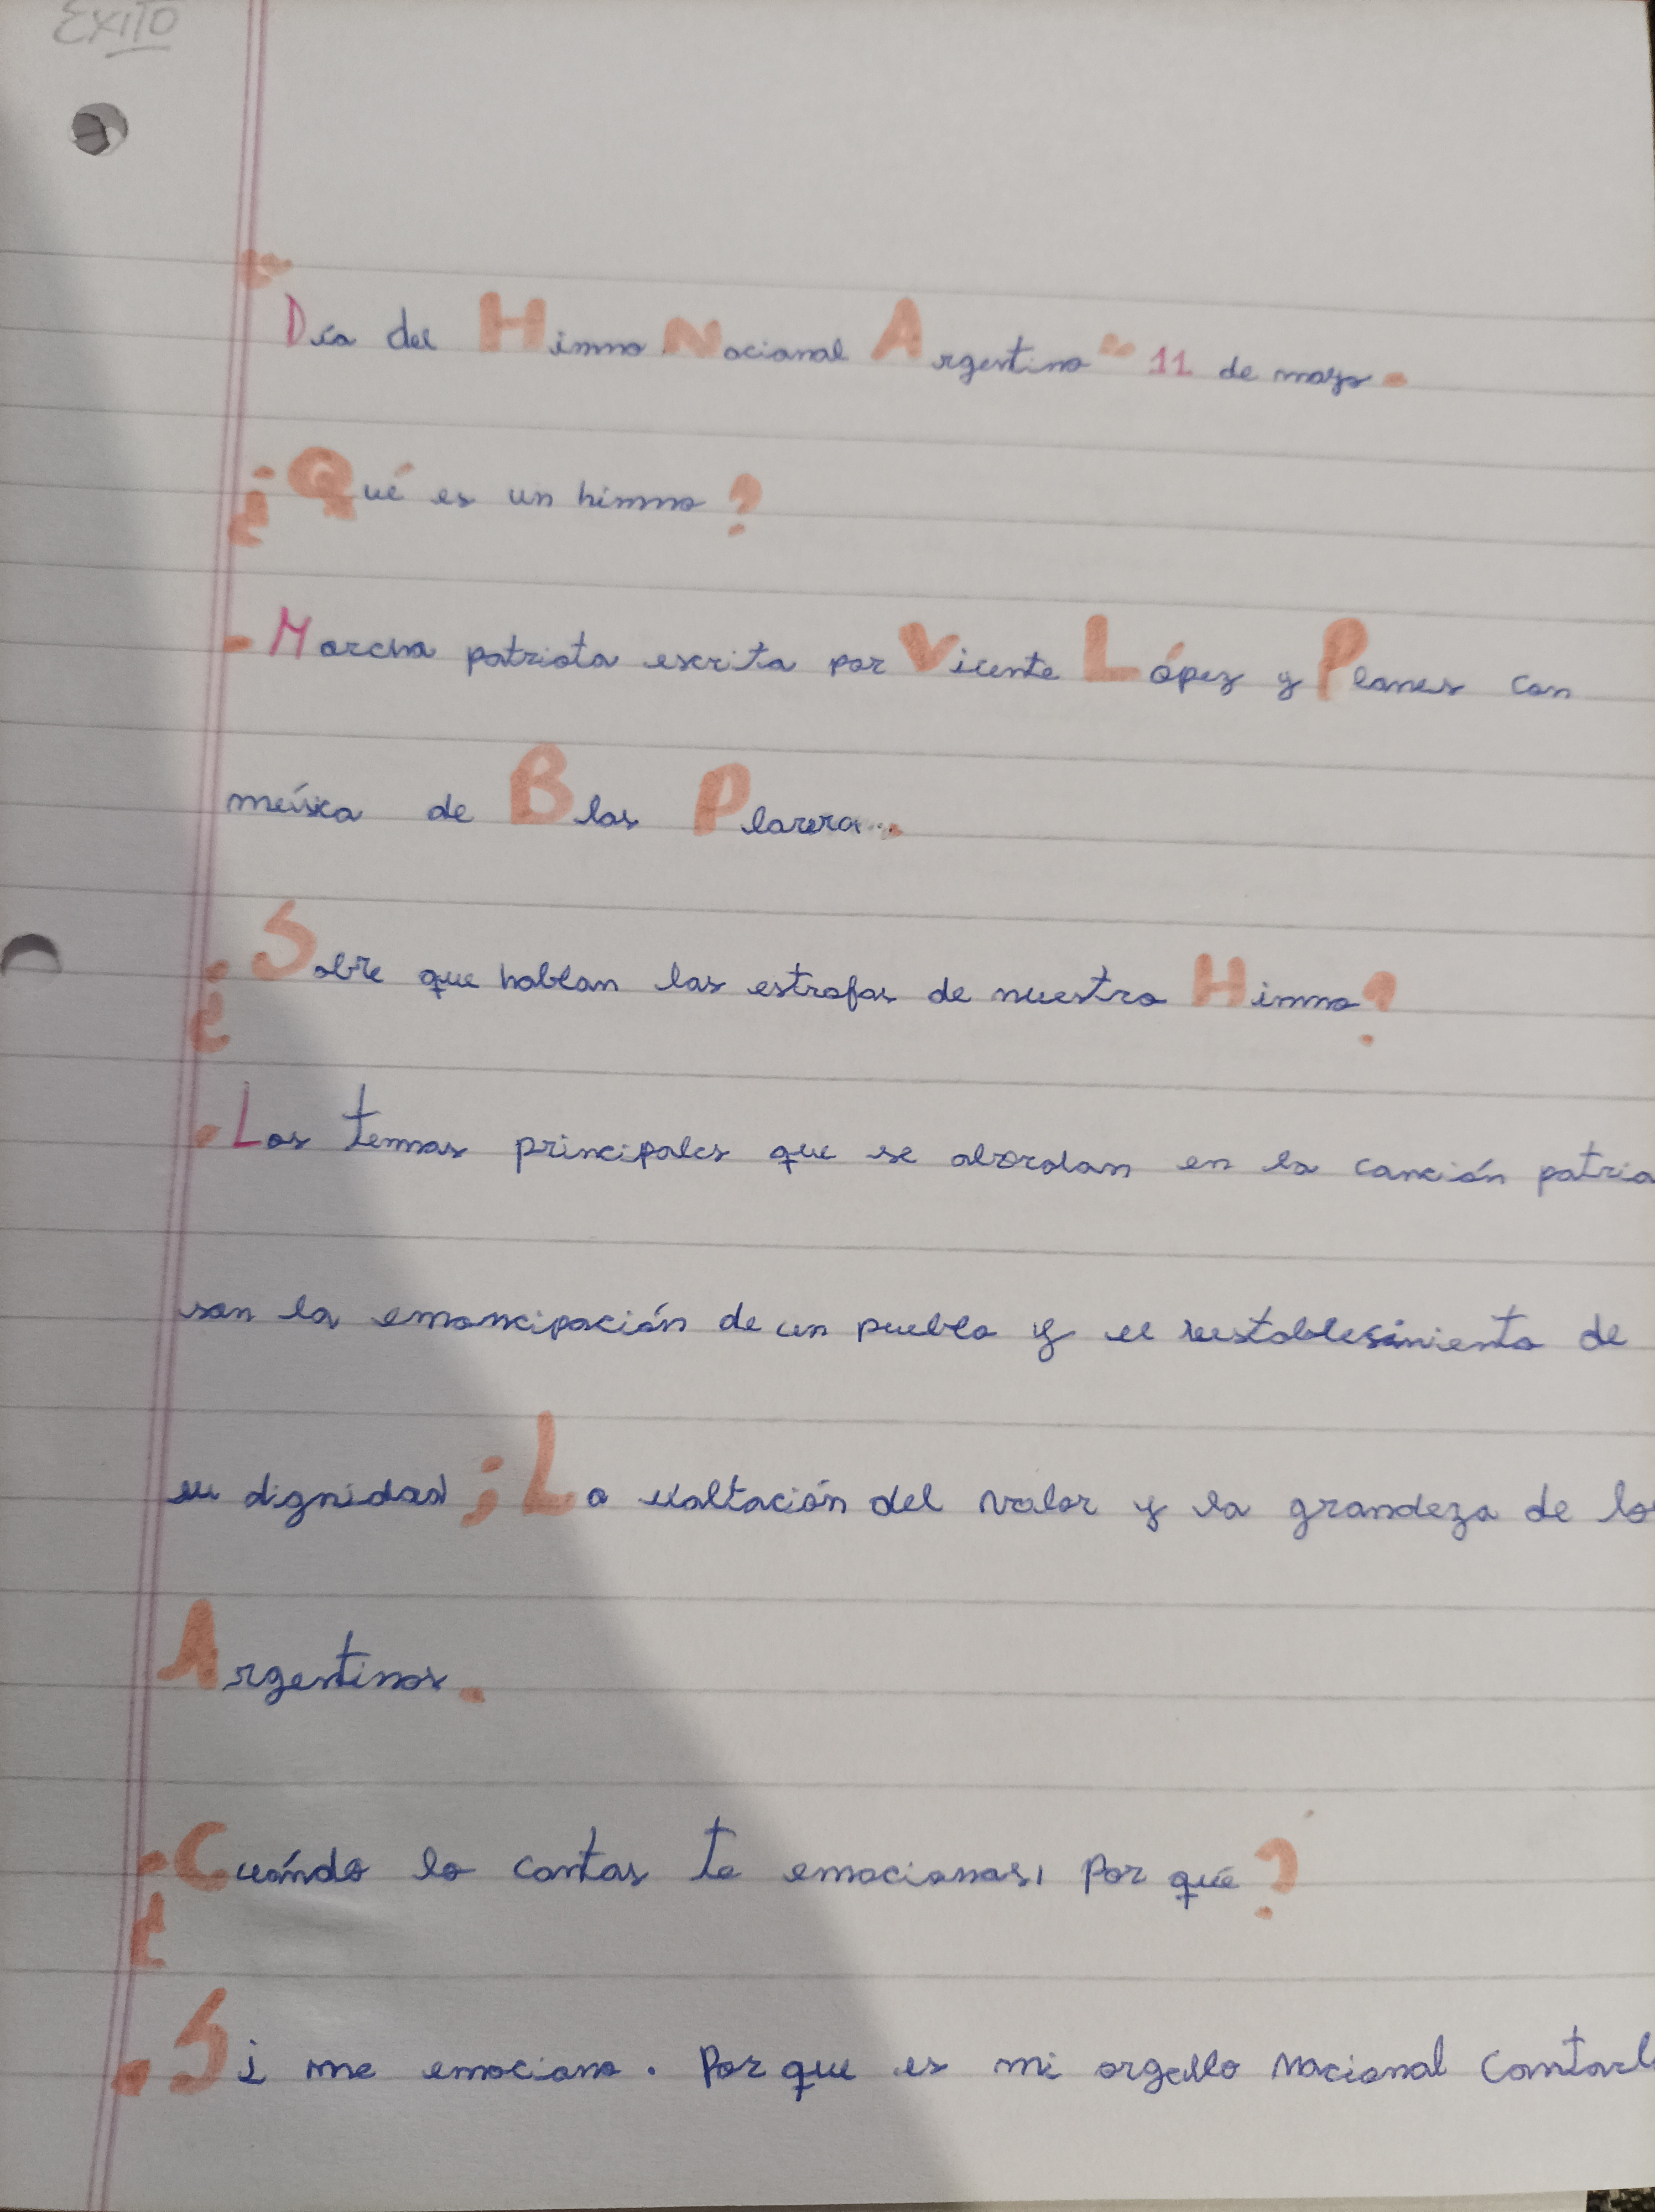 EXITO
"Día del Himno Nacional Argentino" 11 de mayo.
¿Qué es un himno?
- Marcha patriota escrita por Vicente López y Planes con
meísica de Blas Plarera.
¿Sobre que hablan las estrofas de nuestro Himno?
- Los temas principales que se abordan en la canción patria
son la emancipación de un pueblo y el reestablesimiento de
su dignidad; La exaltación del valor y la grandeza de lo
Argentinos.
¿Cuándo lo cantas te emocionas, por qué?
- Si me emociono. Por que es mi orgullo nacional Cantarl